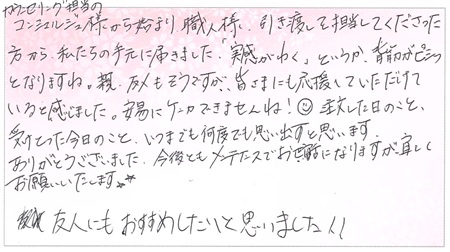 カウンセリング担当の
コンシェルジュ様から始まり、職人様、引き渡して担当してくださった
方から、私たちの手元に届きました。「実感がわく」というか、背筋がピシッ
となりますね。親、友人もそうですが、皆さまにも応援していただけて
いると感じました。安易にケンカできませんね!☺ 注文した日のこと、
受けとった今日のこと、いつまでも何度でも思い出すと思います。
ありがとうございました。今後ともメンテナンスでお世話になりますが宜しく
お願いいたします。☆☆
友人にもおすすめしたいと思いました!!